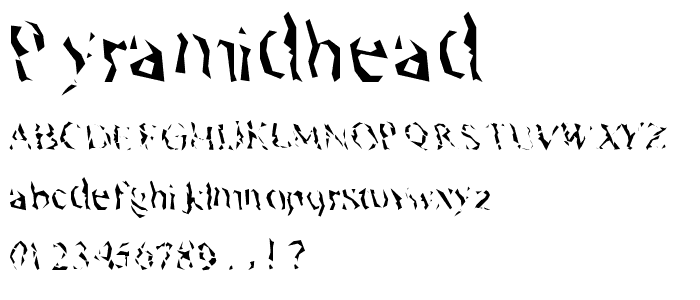 Pyramidhead
ABCDEFGHIJKLMNOPQRSTUVWXYZ
abcdefghijklmnopqrstuvwxyz
0123456789.,!?